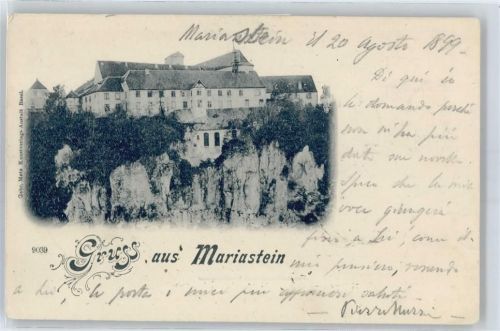 Mariastein il 20 Agosto 1899
Di qui io
le domando perché
non m'ha più
date sue
Spero che la mia
voce giungerà
fino a Lei, come il
mio pensiero,
a Lei, le porta i miei più affettuosi saluti
Gebr. Metz Kunstverlags-Anstalt Basel.
9039
Gruss aus Mariastein